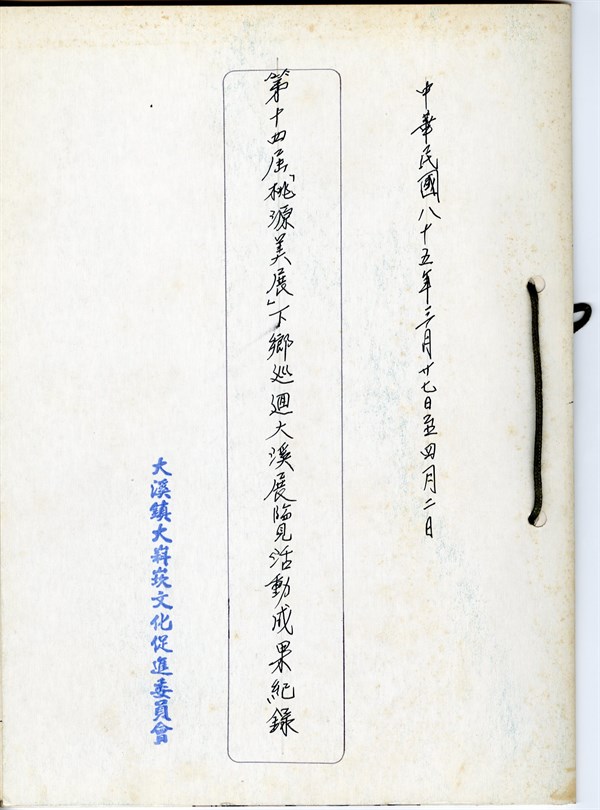 中華民國八十五年三月廿七日至四月二日
第十四屆「桃源美展」下鄉巡迴大溪展覽活動成果紀錄
大溪鎮大嵙崁文化促進委員會